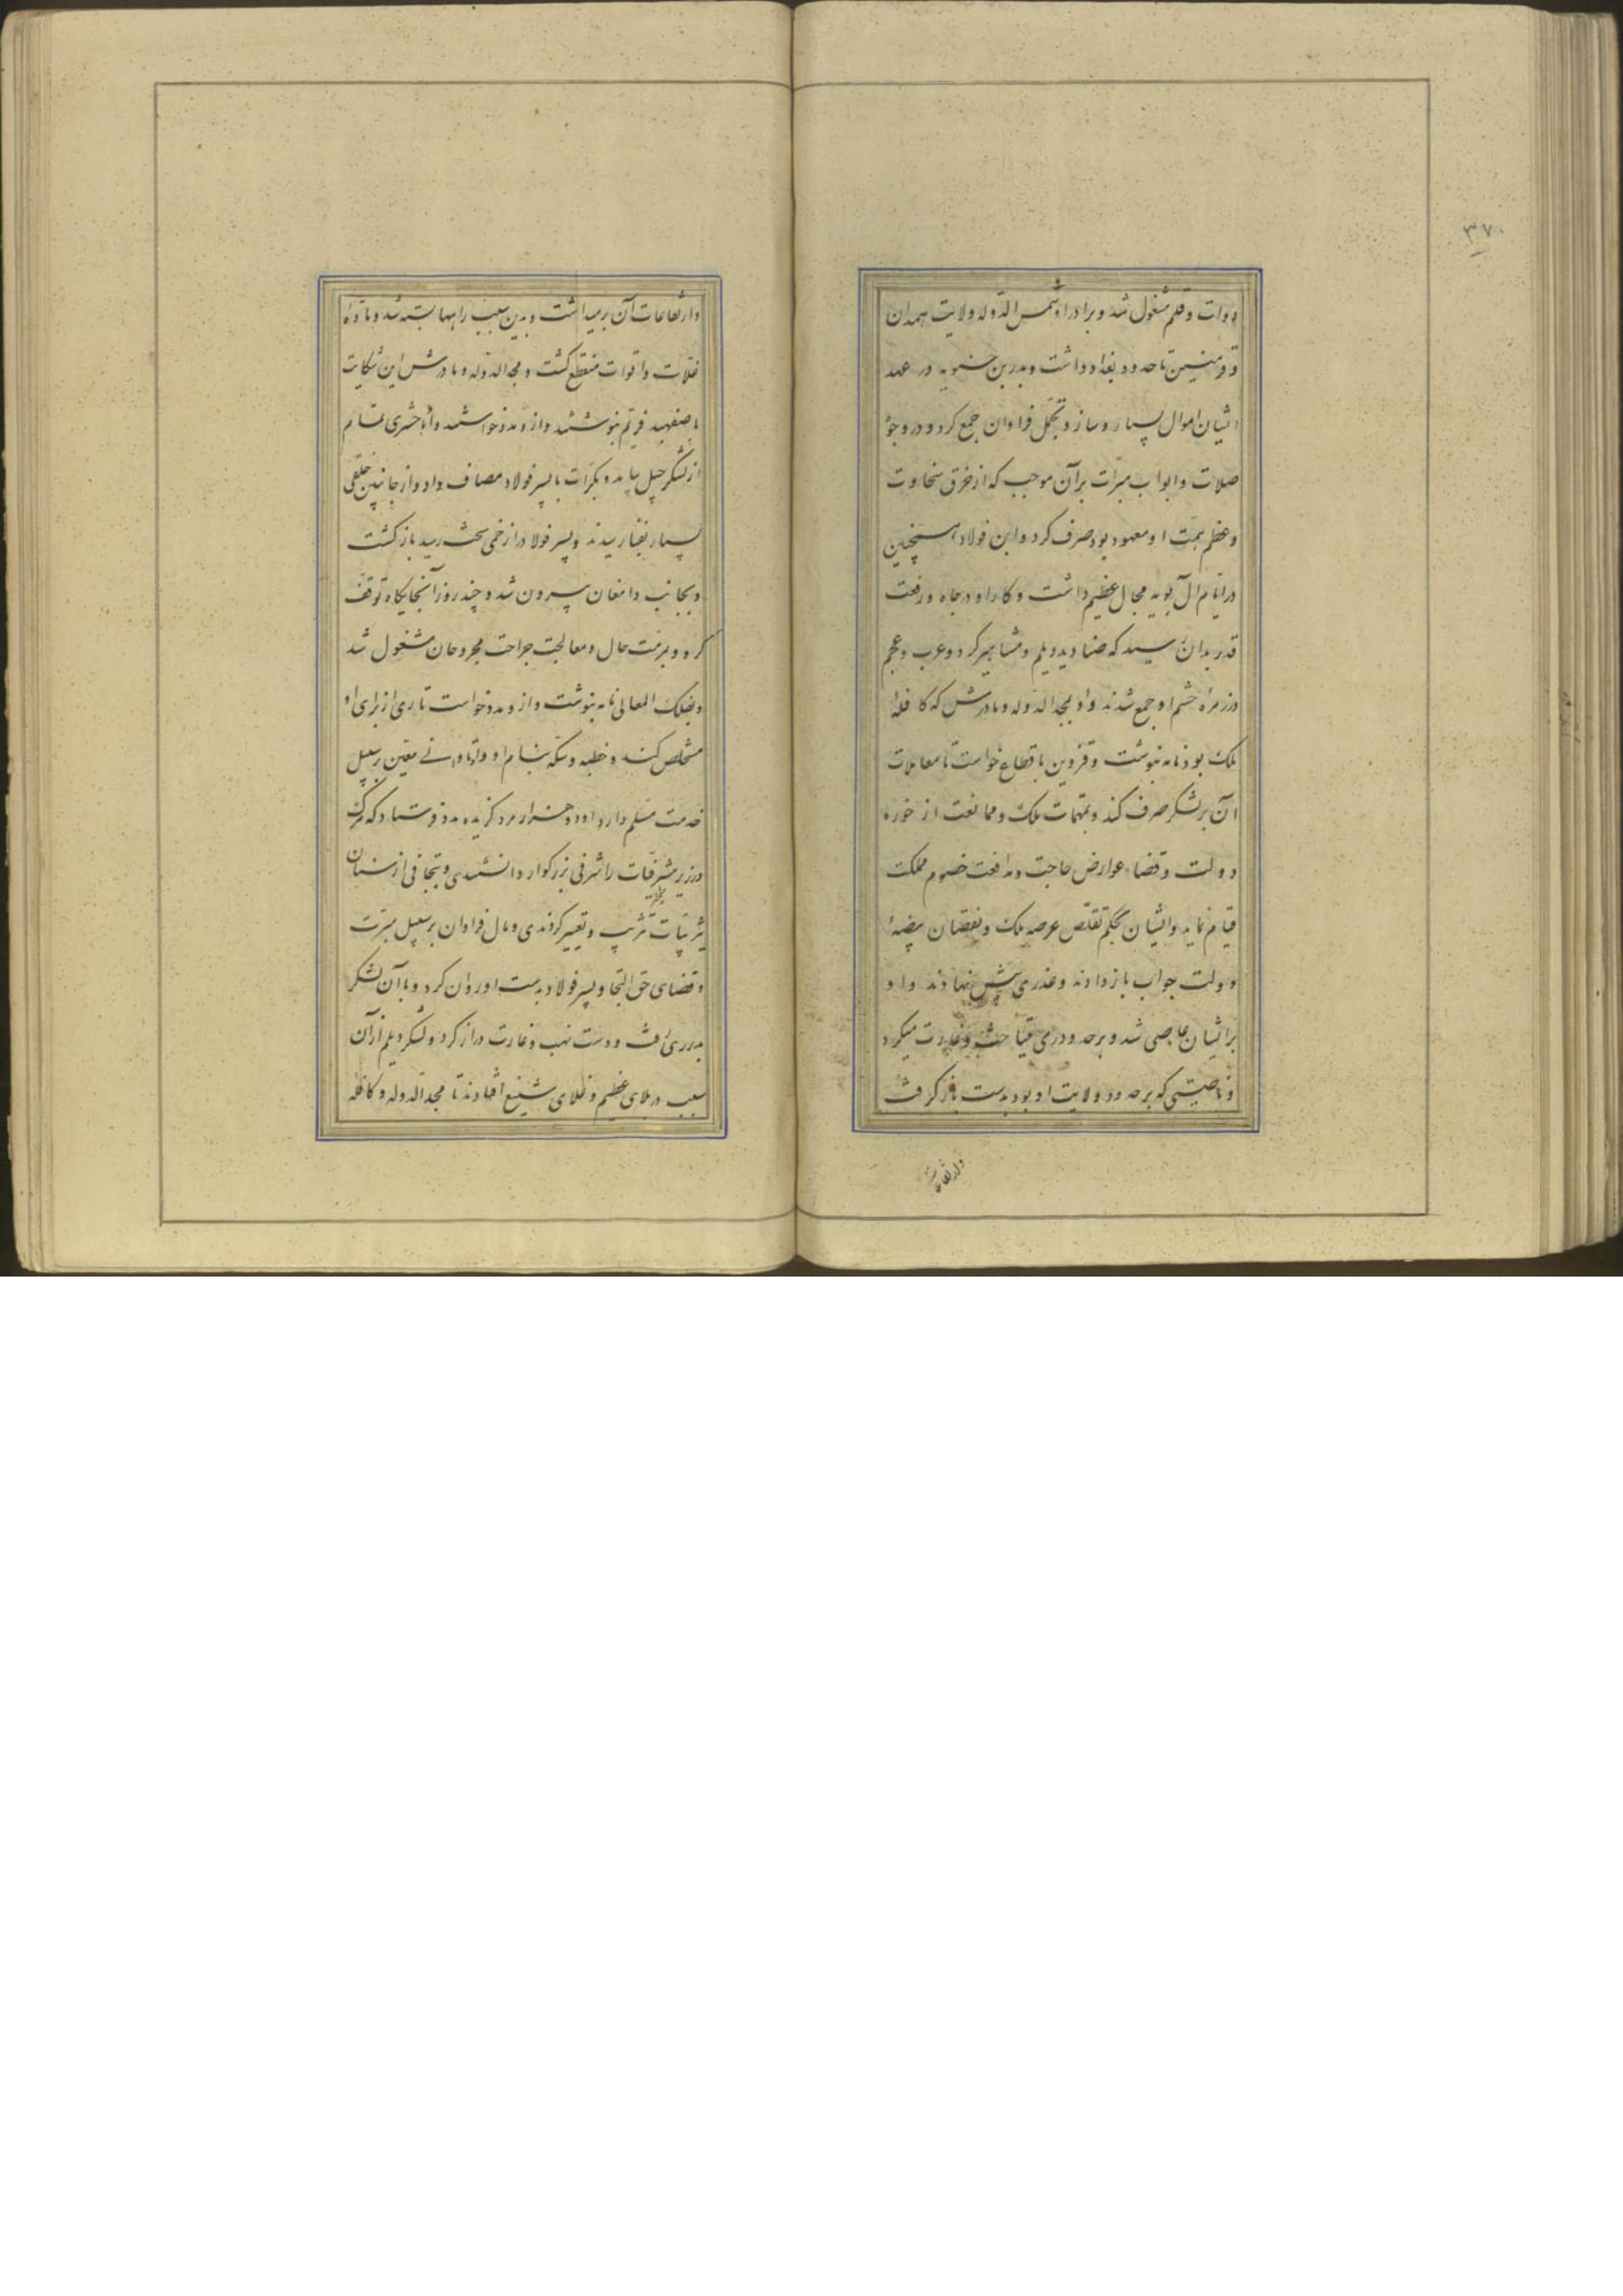 ۳۷۰
بدوات و قلم مشغول شد و برادر او شمس الدوله ولایت همدان
و قرمیسین تا حدود بغداد داشت و بدر بن حسنویه در عهد
ایشان اموال بسیار و ساز و تجمل فراوان جمع کرد و در وجوه
صلات و ابواب مبرات بر آن موجب که از خرق سخاوت
و عظم همت او معهود بود صرف کرد و ابن فولاد همچنین
در ایام آل بویه مجال عظیم داشت و کار او در جاه و رفعت
قدر بدان رسید که صنادید دیلم و مشاهیر کرد و عرب و عجم
در زمرهٔ حشم او جمع شدند و او بمجد الدوله و مادرش که کافله
ملک بود نامه نبوشت و قزوین باقطاع خواست تا معاملات
آن بر لشکر صرف کند و بمهمات ملک و ممانعت از حوزه
دولت و قضاء عوارض حاجت و مدافعت خصوم مملکت
قیام نماید و ایشان بحکم تقلص عرصه ملک و نقصان بیضهٔ
دولت جواب باز دادند و عذری پیش نهادند و او
بر ایشان عاصی شد و بر حدود ری غارت میکرد
و ناحیتی که بر حدود ولایت او بود بدست باز گرفت
وارتفاعات
وارتفاعات آن برمیداشت و بدین سبب راهها بسته شد و مادهٔ
غلات و اقوات منقطع گشت و مجد الدوله و مادرش این شکایت
باصفهبد فریم نبوشتند و از و مدد خواستند و او با حشری تمام
از لشکر جیل بیامد و بکرات با پسر فولاد مصاف داد و از جانبین خلقی
بسیار بفنا رسیدند و پسر فولاد را زخمی سخت رسید بازگشت
و بجانب دامغان بیرون شد و چند روز آنجایگاه توقف
کرد و بمرمت حال و معالجت جراحت مجروحان مشغول شد
و بفلک المعالی نامه نبوشت و از و مدد خواست تا ری از برای او
مستخلص کند و خطبه و سکه بنام او و اتاواتی معین بر سبیل
خدمت مسلم دارد او دو هزار مرد گزیده مدد فرستاد که هر یک
شریبات تتریب و تعییر کردندی و مال فراوان بر سبیل مبرت
و قضای حق التجا و پسر فولاد بدست او روان کرد و با آن لشکر
بدر ری رفت و دست نهب و غارت دراز کرد و لشکر دیلم از آن
سبب در بلای عظیم و غلای شنیع افتادند تا مجد الدوله و کافله